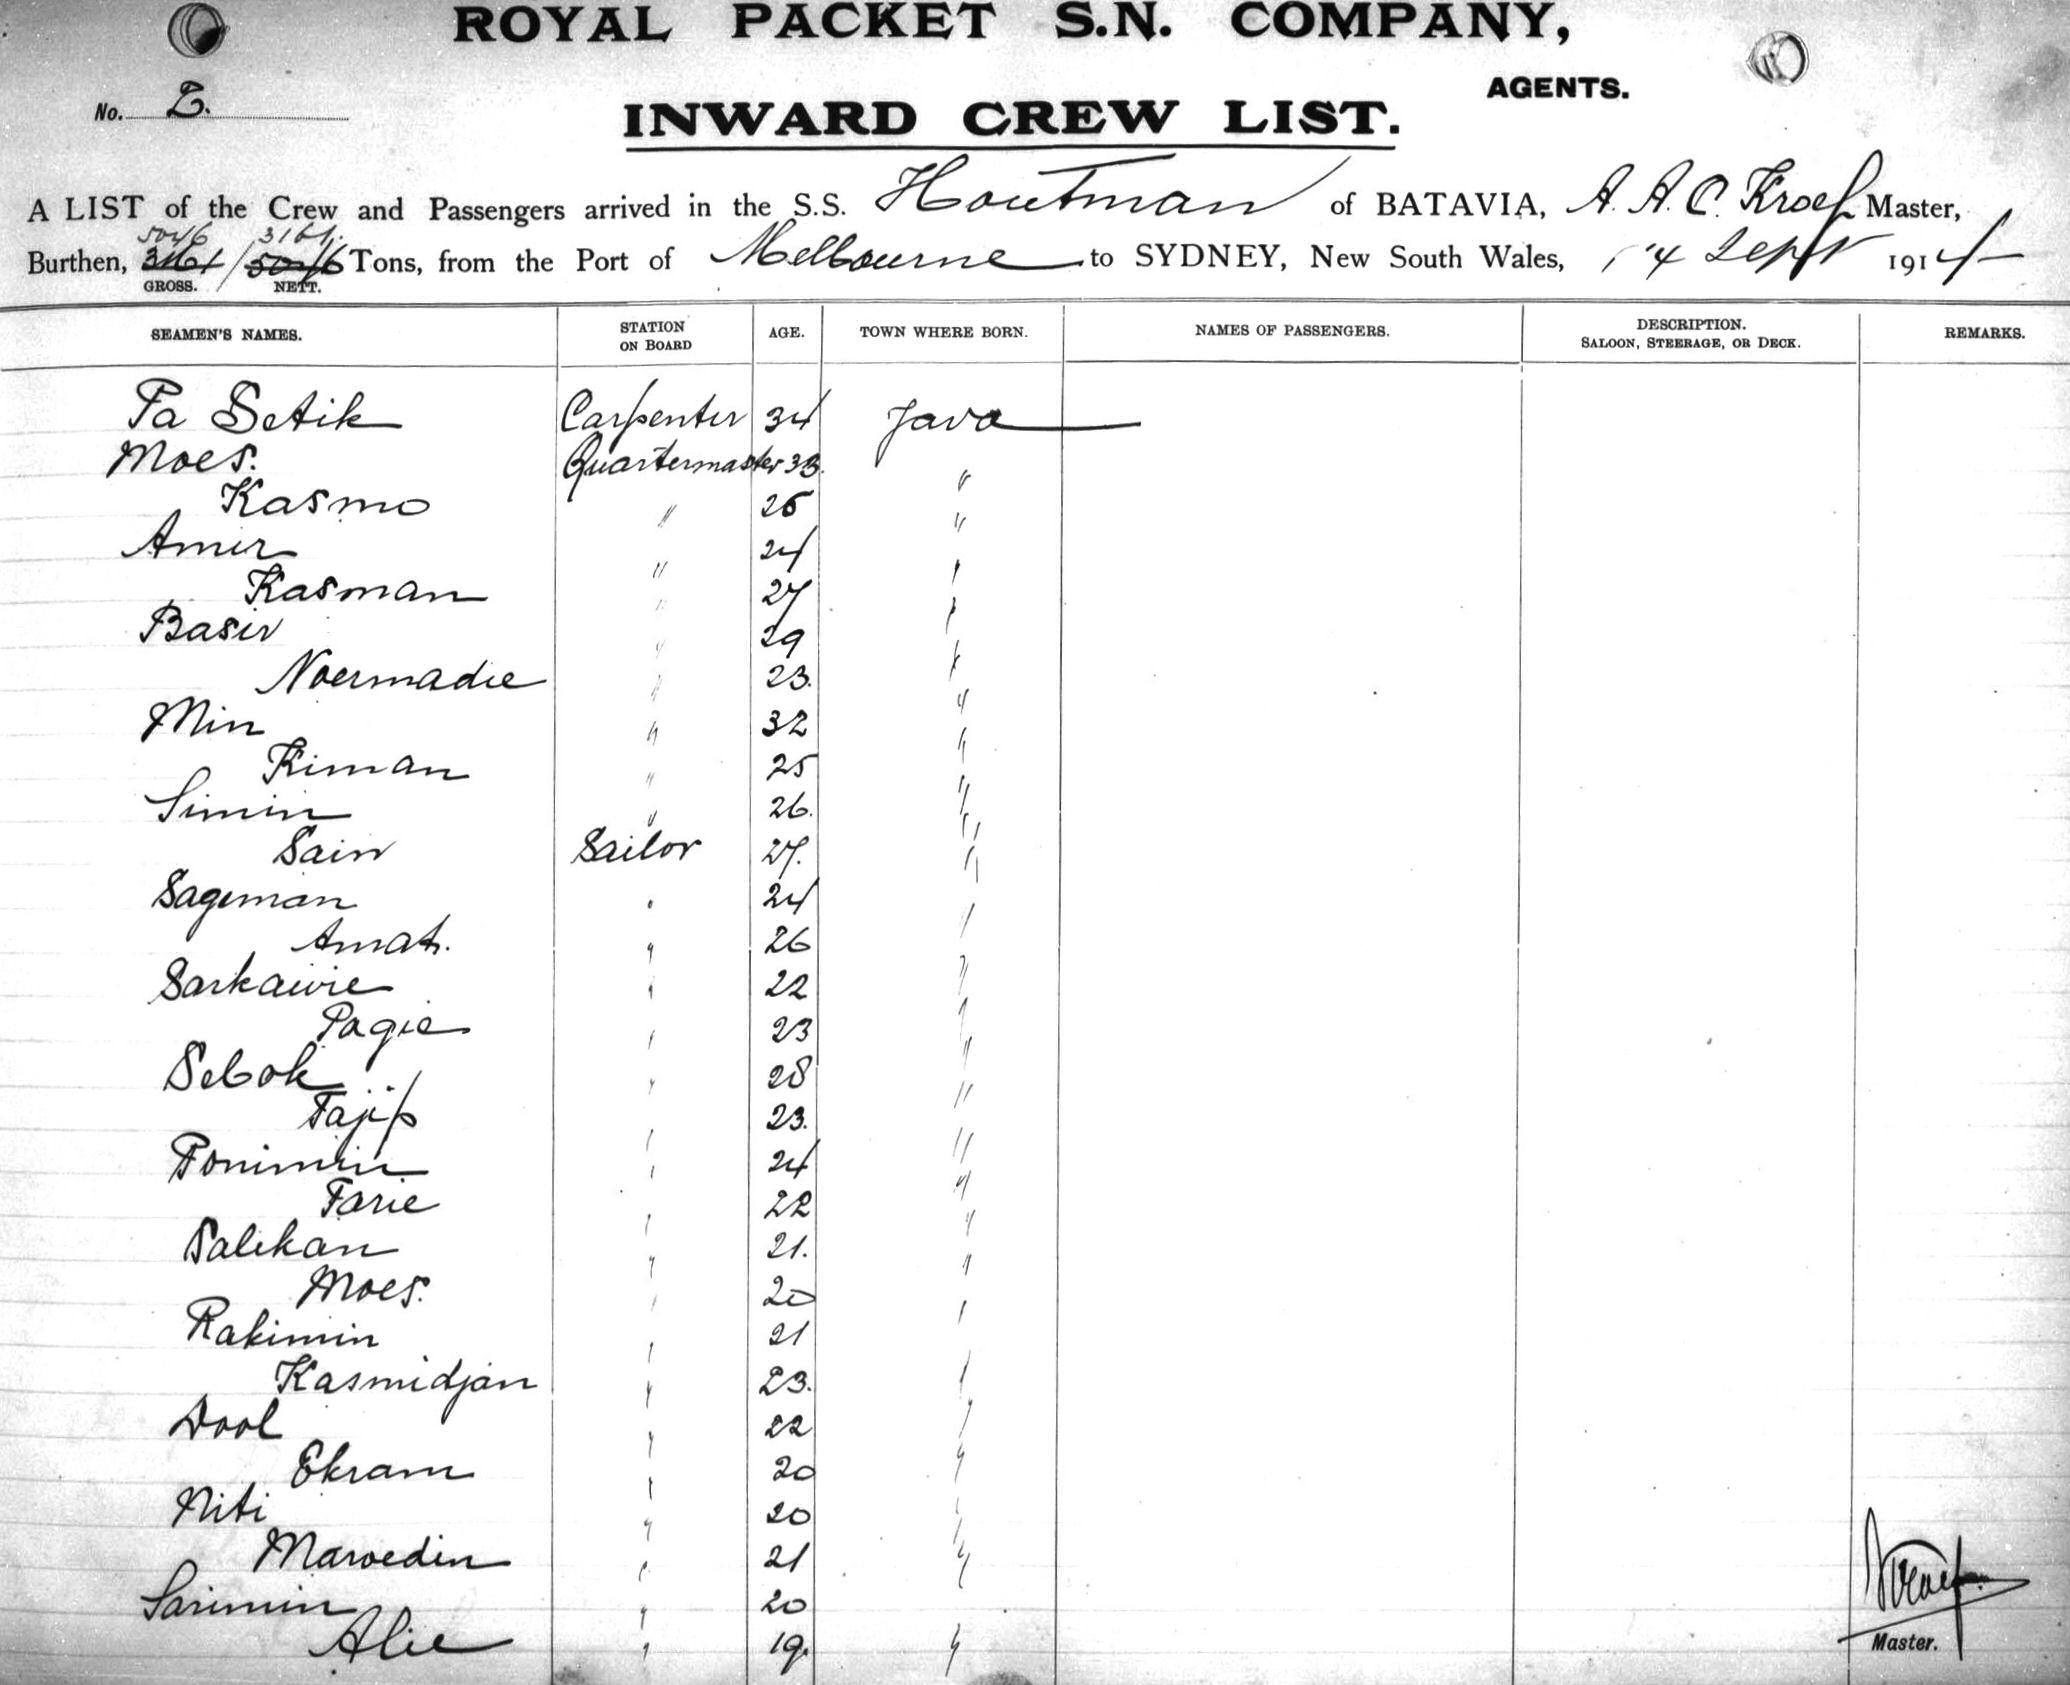 ROYAL PACKET S.N. COMPANY,
AGENTS.
No. 2.
INWARD CREW LIST.
A LIST of the Crew and Passengers arrived in the S.S. Houtman of BATAVIA, A. A. C. Kroef Master,
5046 3161.
Burthen, 3161 / 5046 Tons, from the Port of Melbourne to SYDNEY, New South Wales, 14 Sept 1914
GROSS. NETT.
SEAMEN'S NAMES. STATION ON BOARD AGE. TOWN WHERE BORN. NAMES OF PASSENGERS. DESCRIPTION. SALOON, STEERAGE, OR DECK. REMARKS.
Pa Setik Carpenter 34 Java
Moes. Quartermaster 33. "
Kasmo " 26 "
Amir " 24 "
Kasman " 27 "
Basir " 29 "
Noermadie " 23. "
Min " 32 "
Kiman " 25 "
Simin " 26. "
Sain Sailor 27. "
Sageman " 24 "
Amat. " 26 "
Sarkawie " 22 "
Pagie " 23 "
Sebok " 28 "
Tajip " 23. "
Ponimin " 24 "
Tarie " 22 "
Salikan " 21. "
Moes. " 20 "
Rakimin " 21 "
Kasmidjan " 23. "
Dool " 22 "
Ekram " 20 "
Niti " 20 "
Maroedin " 21 "
Sarimin " 20
Alie " 19. "
Kroef
Master.